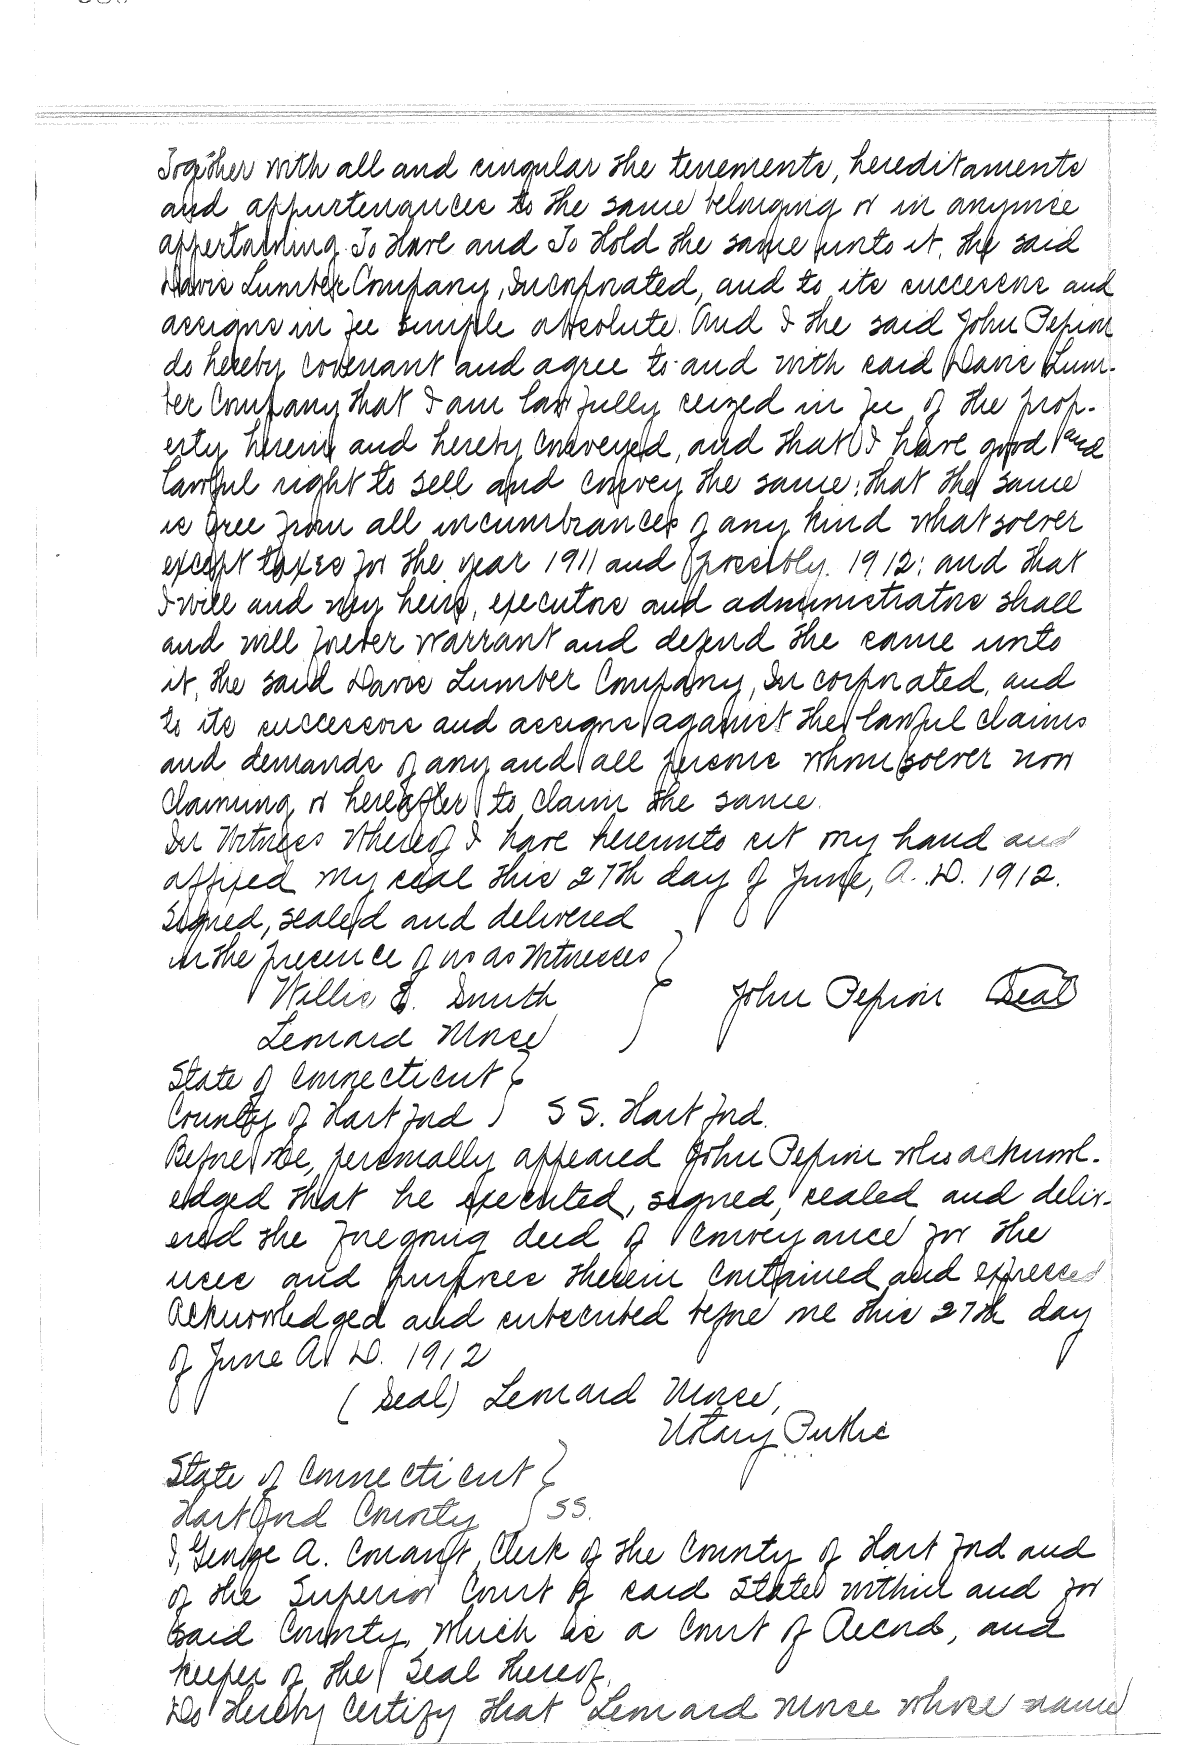 Together with all and singular the tenements, hereditaments
and appurtenances to the same belonging or in anywise
appertaining. To Have and To Hold the same unto it, the said
Davis Lumber Company, Incorporated, and to its successors and
assigns in fee simple absolute. And I the said John Pepion
do hereby covenant and agree to and with said Davis Lum-
ber Company that I am lawfully seized in fee of the prop-
erty herein and hereby conveyed, and that I have good and
lawful right to sell and convey the same; that the same
is free from all incumbrances of any kind whatsoever
except taxes for the year 1911 and possibly 1912; and that
I will and my heirs, executors and administrators shall
and will forever warrant and defend the same unto
it, the said Davis Lumber Company, Incorporated, and
to its successors and assigns against the lawful claims
and demands of any and all persons whomsoever now
claiming or hereafter to claim the same.
In Witness Whereof I have hereunto set my hand and
affixed my seal this 27th day of June, A. D. 1912.
Signed, sealed and delivered
in the presence of us as Witnesses
Willis E. Smith John Pepion Seal
Leonard Morse
State of Connecticut
County of Hartford SS. Hartford.
Before me, personally appeared John Pepion who acknowl-
edged that he executed, signed, sealed and deliv-
ered the foregoing deed of conveyance for the
uses and purposes therein contained and expressed
Acknowledged and subscribed before me this 27th day
of June A. D. 1912
(Seal) Leonard Morse,
Notary Public
State of Connecticut
Hartford County SS.
I, George A. Conant, Clerk of the County of Hartford and
of the Superior Court of said State within and for
said County, which is a Court of Record, and
keeper of the Seal thereof,
Do hereby certify that Leonard Morse whose name